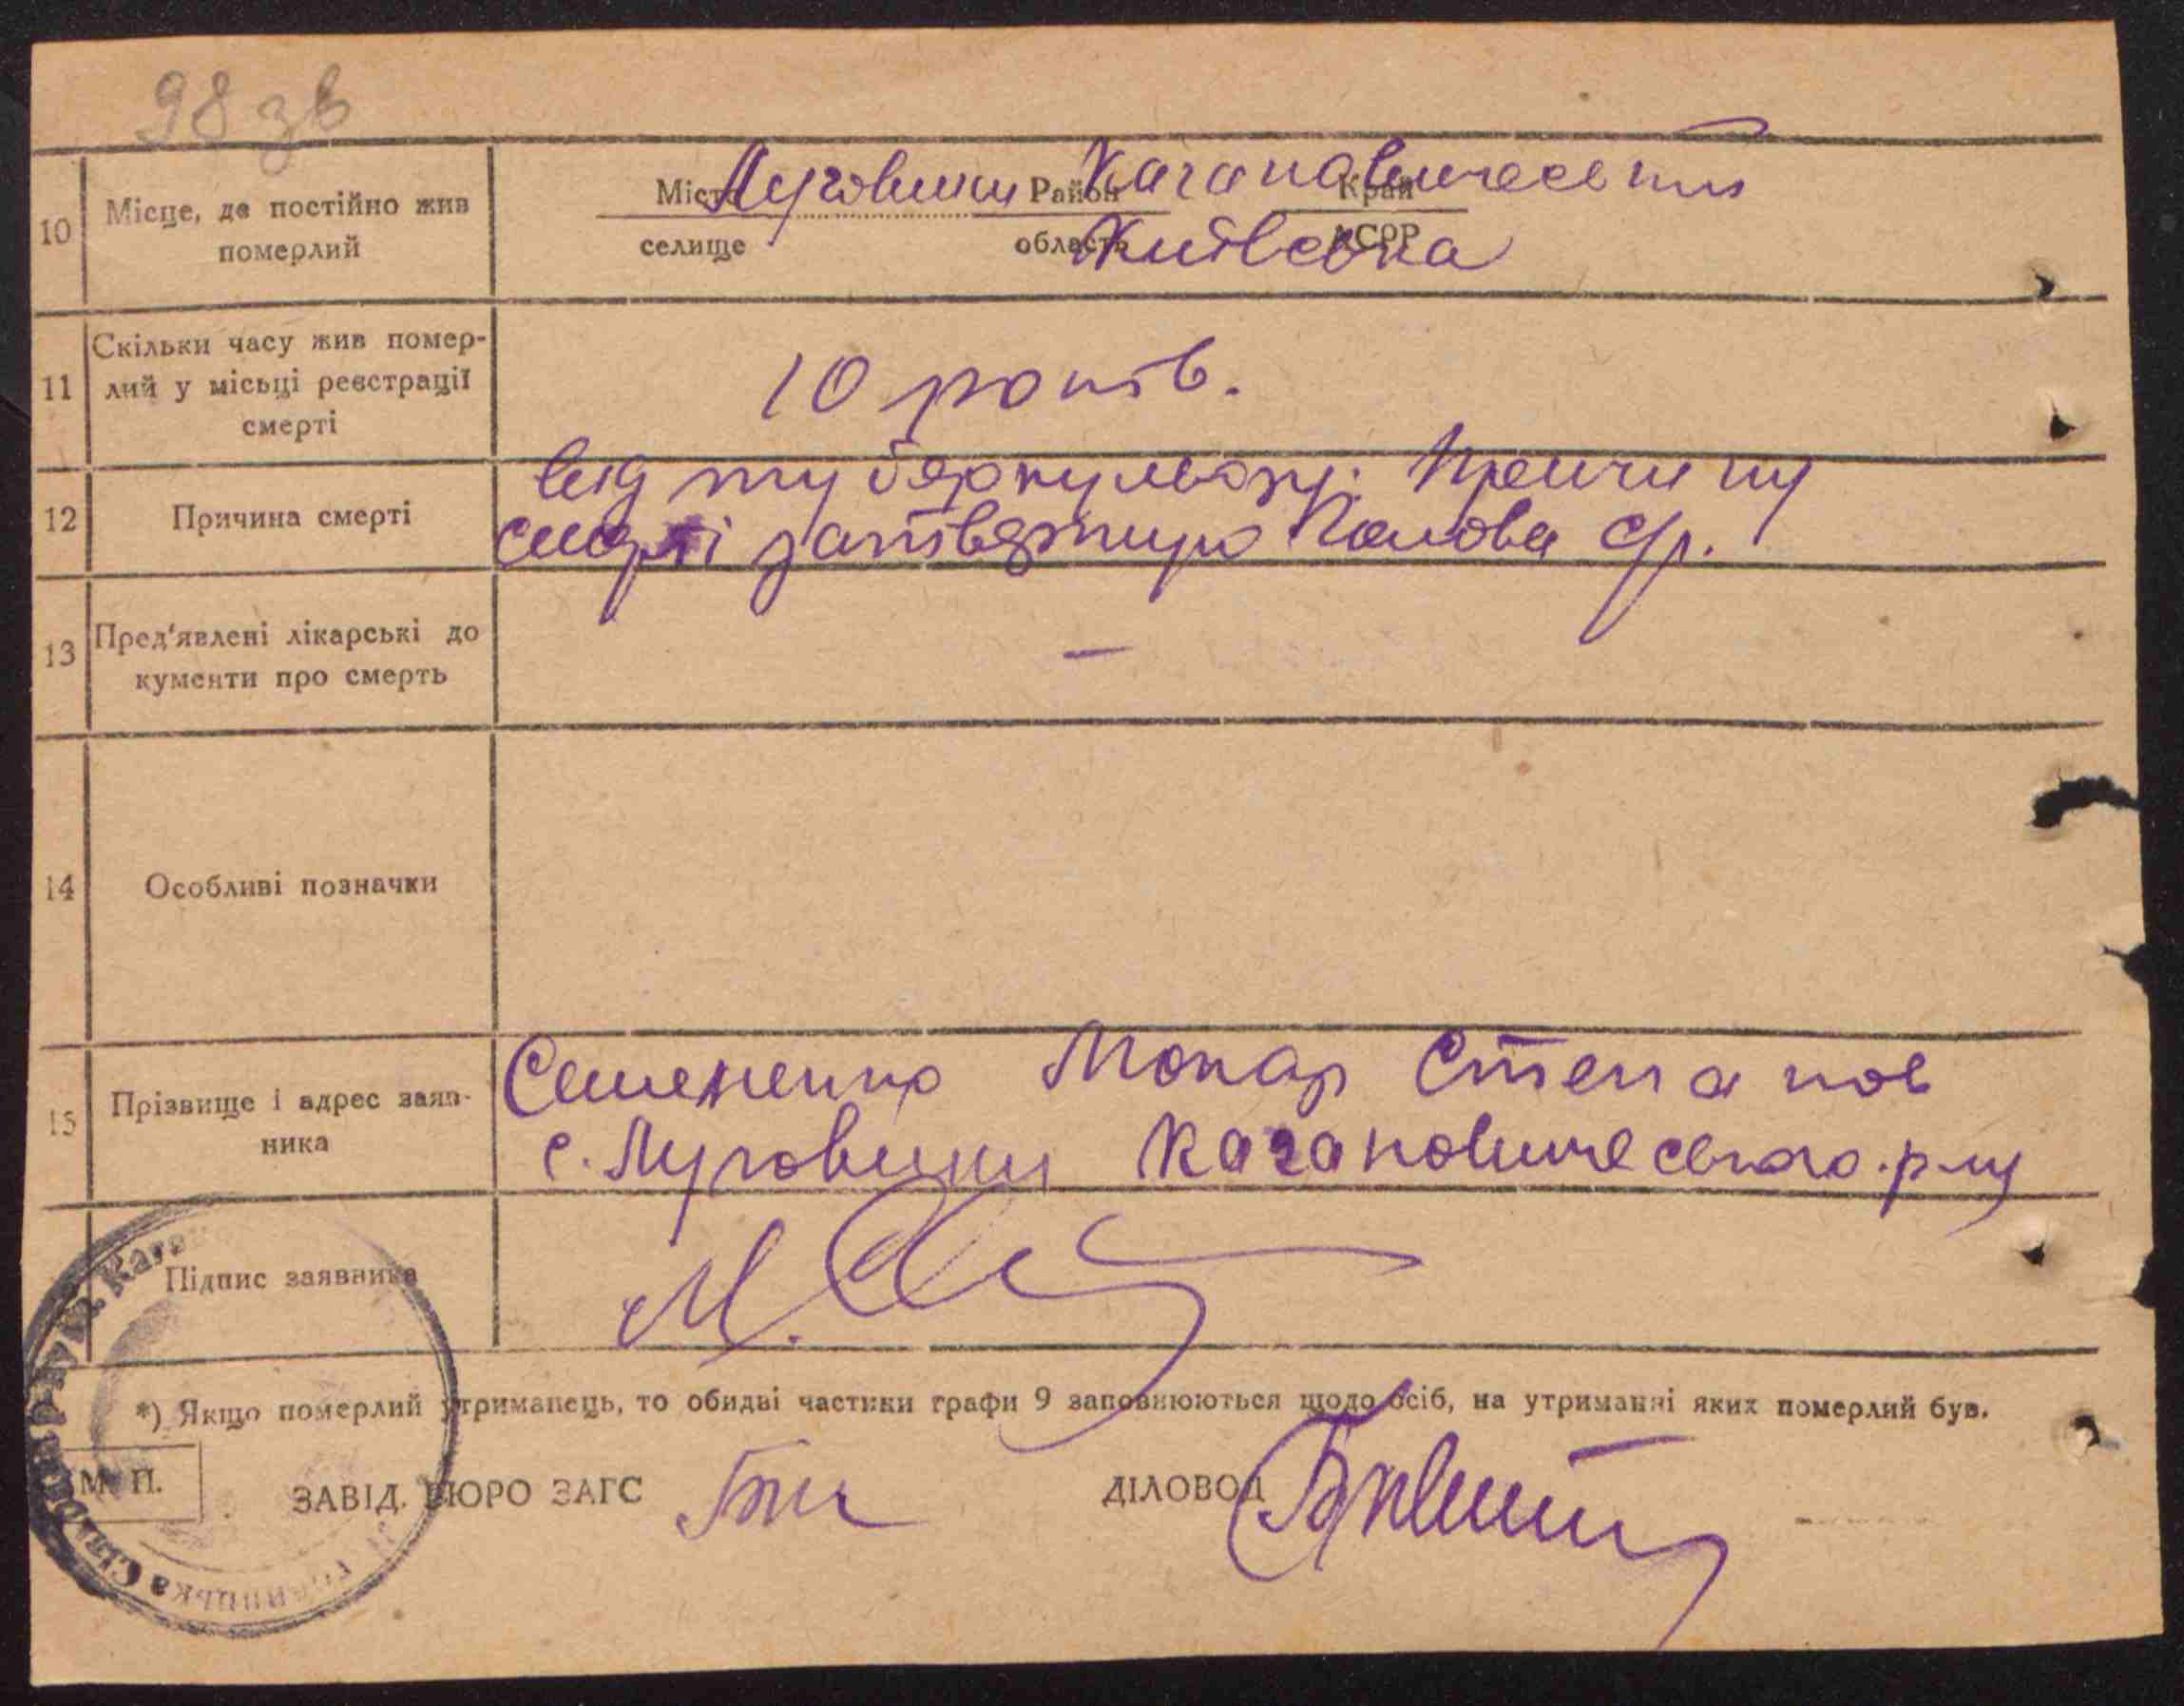 98 зв
10 Місце, де постійно жив померлий
Місто Луговики Район Кагановический Край
селище область Київська АСРР
11 Скільки часу жив помер-
лий у місьці реєстрації
смерті
10 років.
12 Причина смерті
від туберкульозу. Причину
смерті затверджую Голова с/р.
13 Пред'явлені лікарські до
кументи про смерть
—
14 Особливі позначки
15 Прізвище і адрес заяв-
ника
Семененко Мокар Степанов
с. Луговики Кагановического р-ну
Підпис заявника
*) Якщо померлий утриманець, то обидві частини графи 9 заповнюються щодо осіб, на утриманні яких померлий був.
М. П.
ЗАВІД. БЮРО ЗАГС ДІЛОВОД